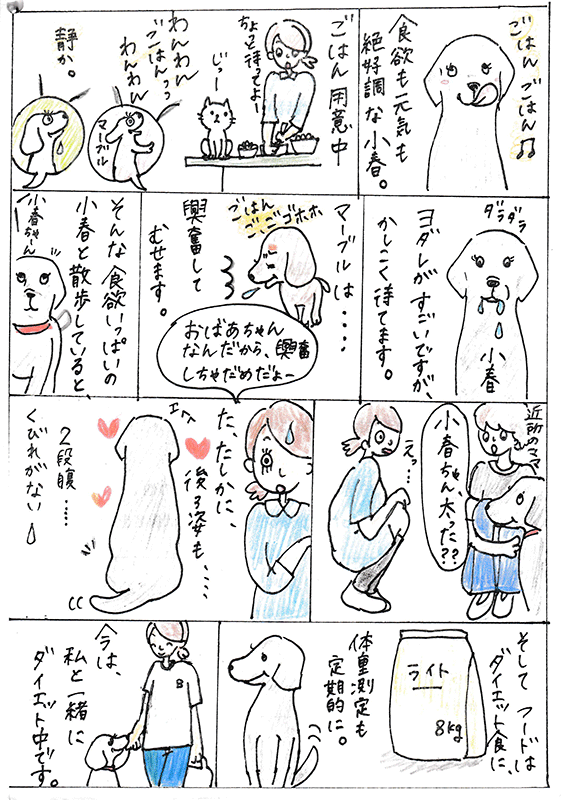 ごはん ごはん♫
食欲も元気も
絶好調な小春。
ごはん用意中
ちょっと待ってよー
じっー
わんわん
ごはんっっ
わんわん
マーブル
静か。
ダラダラ
小春
ヨダレがすごいですが、
かしこく待てます。
マーブルは‥‥
ごはん
ごごゴホホ
興奮して
むせます。
おばあちゃん
なんだから、興奮
しちゃだめだよー
そんな食欲いっぱいの
小春と散歩していると、
小春ちゃーん
近所のママ
小春ちゃん、
太った??
えっ…
た、たしかに、
後ろ姿も、‥‥
エヘ
2段腹‥‥
くびれがない
そして フードは
ダイエット食に、
ライト
8kg
体重測定も
定期的に。
今は、
私と一緒に
ダイエット中です。